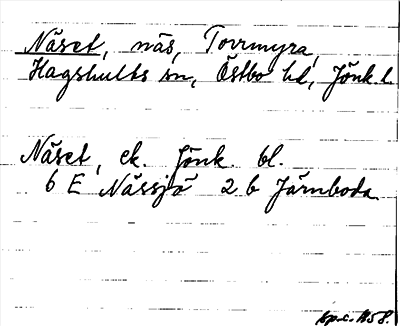 Näset, näs, Torrmyra,
Hagshults sn, Östbo hd, Jönk. l.
Näset, ek. Jönk. bl.
6 E Nässjö 2 b Järnboda